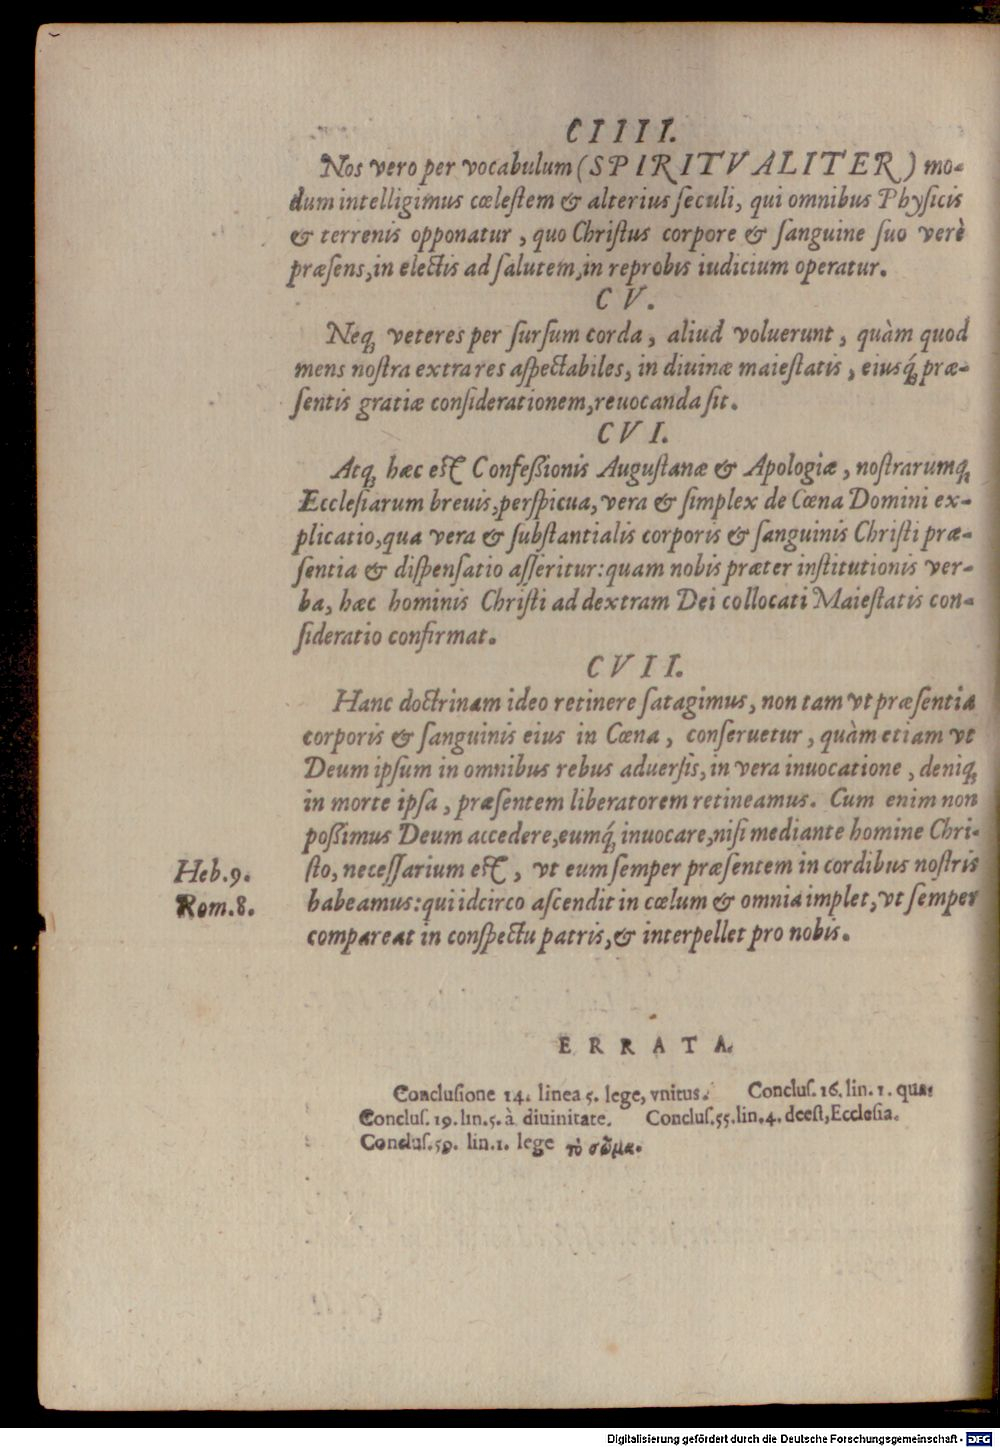 CIIII.
Nos vero per vocabulum (SPIRITVALITER) mo-
dum intelligimus cœleſtem & alterius ſeculi, qui omnibus Phyſicis
& terrenis opponatur, quo Chriſtus corpore & ſanguine ſuo verè
præſens, in electis ad ſalutem, in reprobis iudicium operatur.
CV.
Neq; veteres per ſurſum corda, aliud voluerunt, quàm quod
mens noſtra extra res aſpectabiles, in diuinæ maieſtatis, eiusq́; præ-
ſentis gratiæ conſiderationem, reuocanda ſit.
CVI.
Atq; hæc eſt Confeßionis Auguſtanæ & Apologiæ, noſtrarumq;
Eccleſiarum breuis, perſpicua, vera & ſimplex de Cœna Domini ex-
plicatio, qua vera & ſubſtantialis corporis & ſanguinis Chriſti præ-
ſentia & diſpenſatio aſſeritur: quam nobis præter inſtitutionis ver-
ba, hæc hominis Chriſti ad dextram Dei collocati Maieſtatis con-
ſideratio confirmat.
CVII.
Hanc doctrinam ideo retinere ſatagimus, non tam vt præſentia
corporis & ſanguinis eius in Cœna, conſeruetur, quàm etiam vt
Deum ipſum in omnibus rebus aduerſis, in vera inuocatione, deniq;
in morte ipſa, præſentem liberatorem retineamus. Cum enim non
poßimus Deum accedere, eumq́; inuocare, niſi mediante homine Chri-
ſto, neceſſarium eſt, vt eum ſemper præſentem in cordibus noſtris
habeamus: qui idcirco aſcendit in cœlum & omnia implet, vt ſemper
compareat in conſpectu patris, & interpellet pro nobis.
Heb.9.
Rom.8.
ERRATA.
Concluſione 14. linea 5. lege, vnitus. Concluſ. 16. lin. 1. qua:
Concluſ. 19. lin. 5. à diuinitate. Concluſ. 55. lin. 4. deeſt, Eccleſia.
Concluſ. 59. lin. 1. lege τὸ σῶμα.
Digitalisierung gefördert durch die Deutsche Forschungsgemeinschaft - DFG